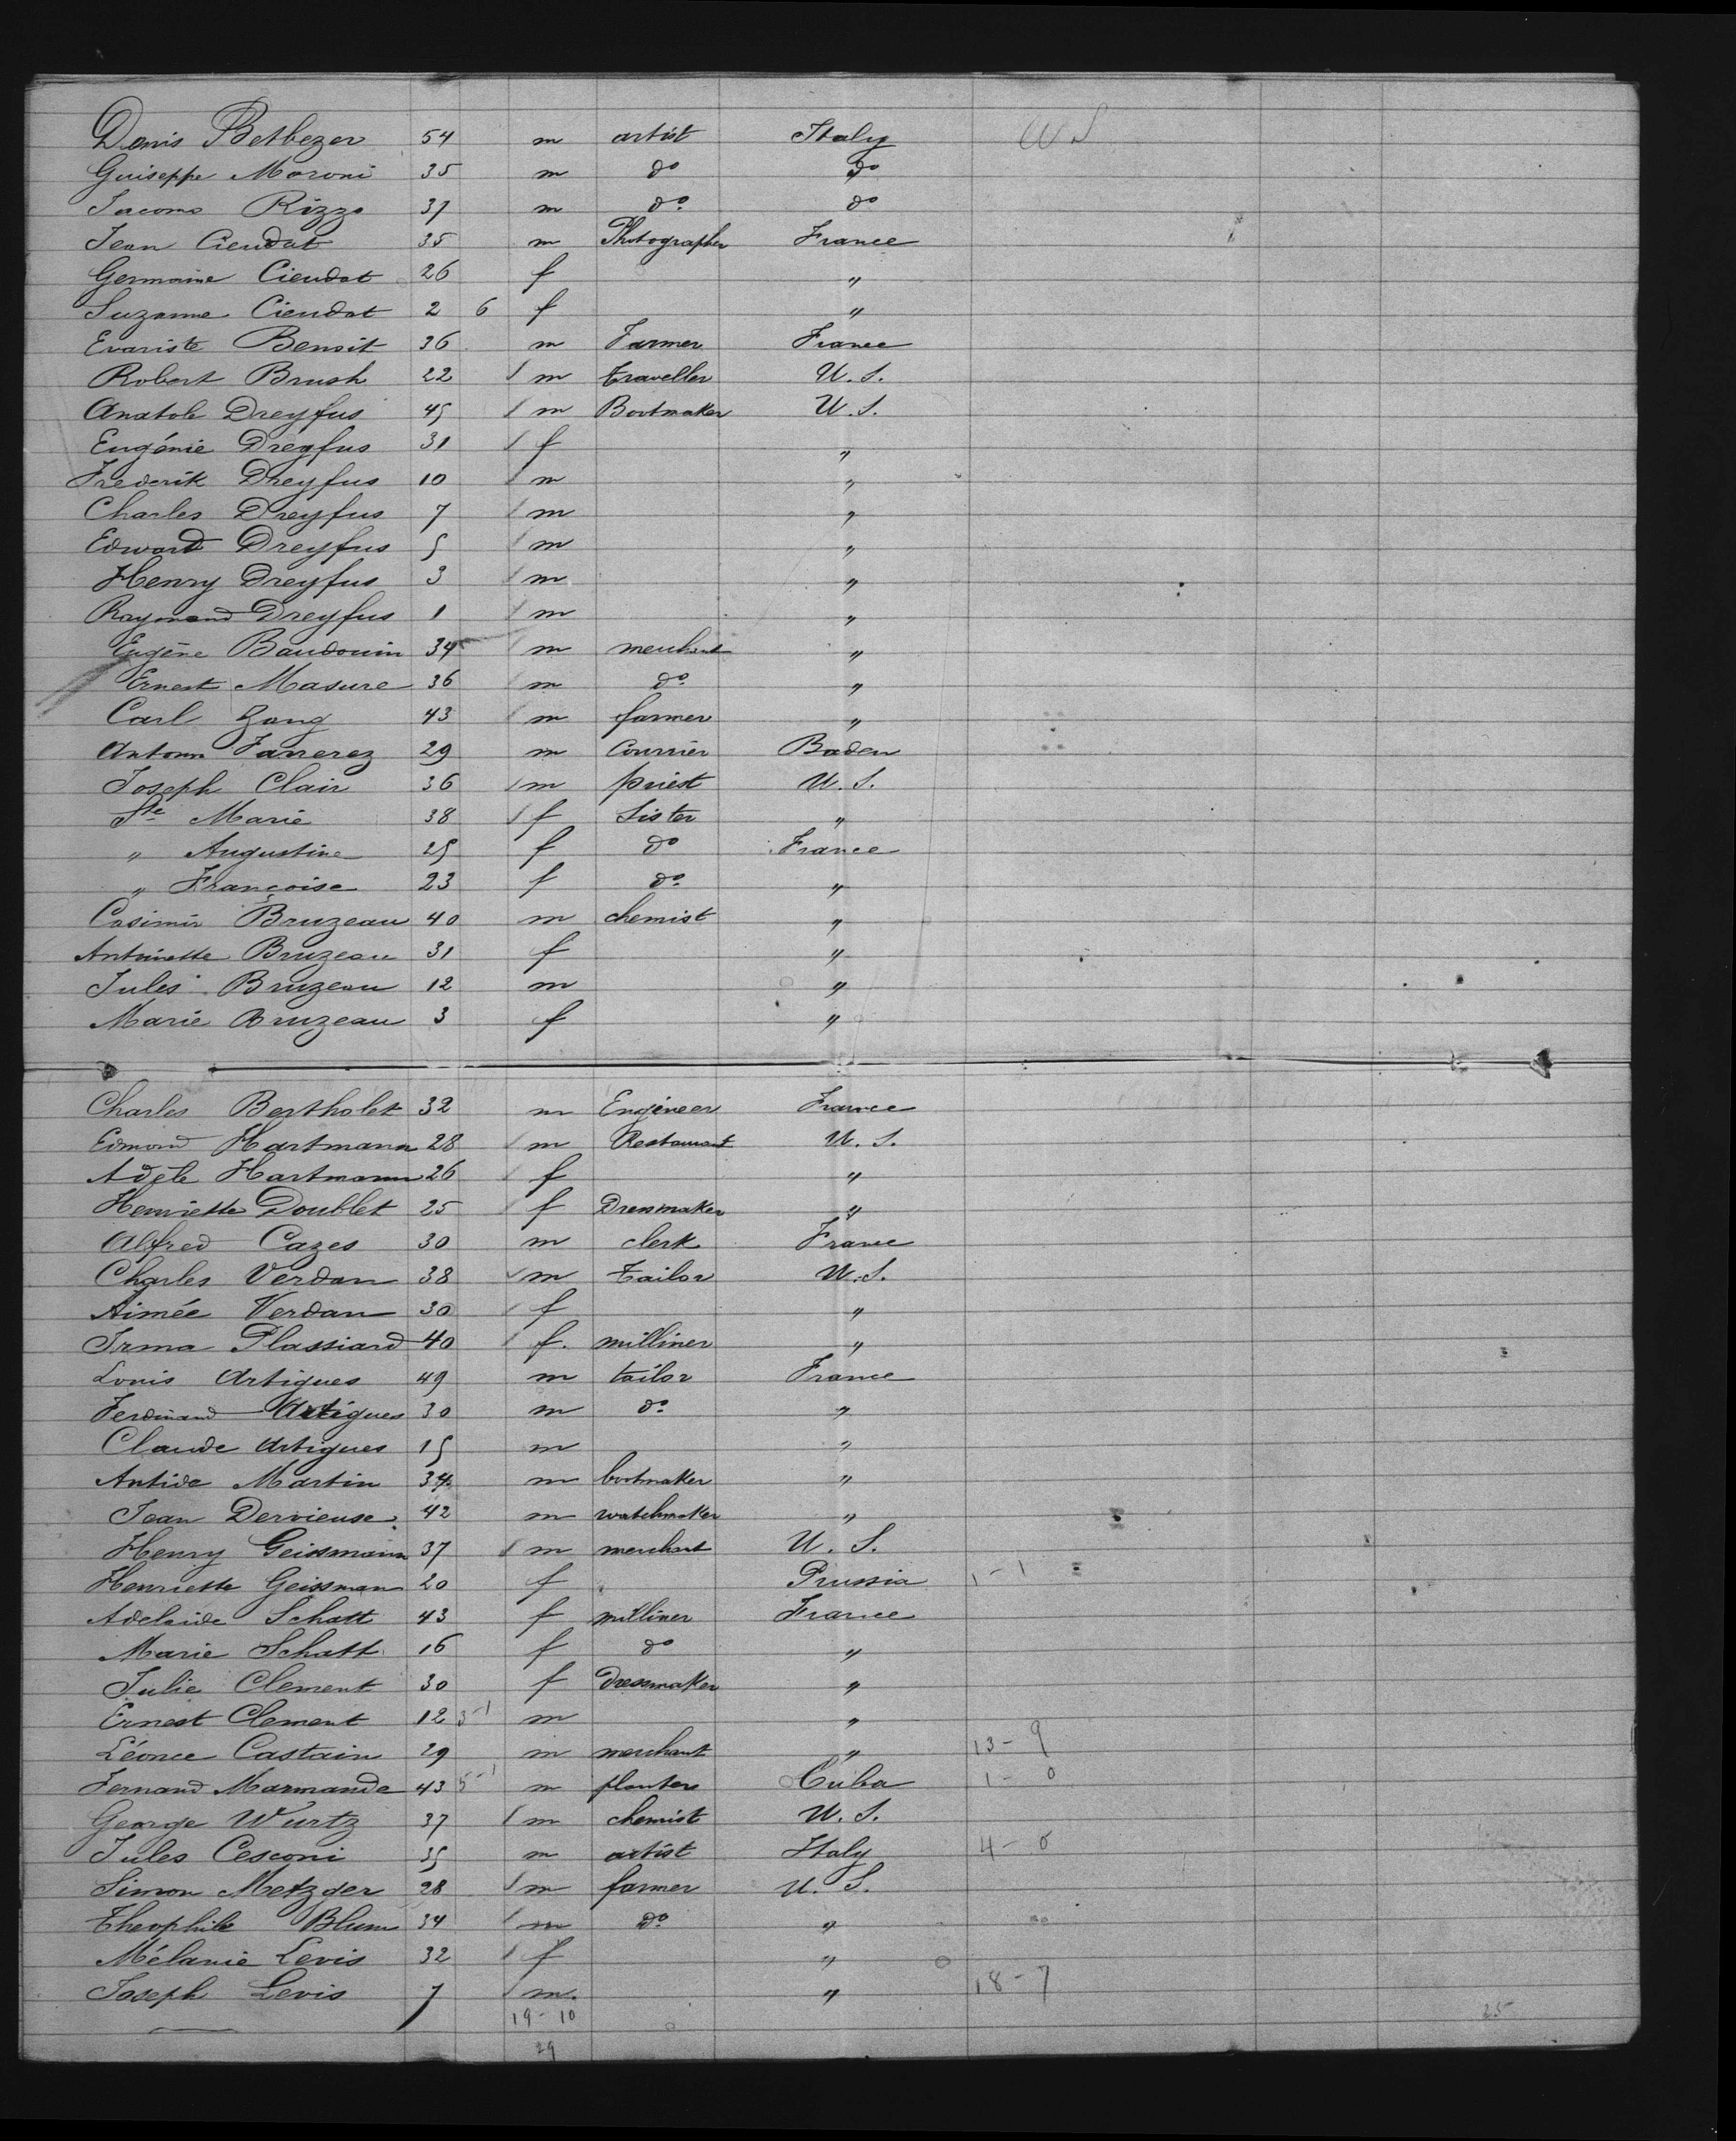 Denis Betbezer 54 m artist Italy W S
Guiseppe Moroni 35 m do do
Iacomo Rizzo 37 m do do
Jean Cieudat 35 m Photographer France
Germaine Cieudat 26 f "
Suzanne Cieudat 2 6 f "
Evariste Benoit 36 m Farmer France
Robert Brush 22 / m Traveller U. S.
Anatole Dreyfus 45 / m Bootmaker U. S.
Eugénie Dreyfus 31 / f "
Frederik Dreyfus 10 / m "
Charles Dreyfus 7 / m "
Edward Dreyfus 5 / m "
Henry Dreyfus 3 / m "
Raymond Dreyfus 1 / m "
Eugène Baudouin 34 / m merchant "
Ernest Masure 36 / m do "
Carl Zang 43 / m farmer "
Antonn Farrerez 29 m Courrier Baden
Joseph Clair 36 / m priest U. S.
Ste Marie 38 / f Sister "
" Augustine 25 f do France
" Françoise 23 f do "
Casimir Bruzeau 40 m chemist "
Antoinette Bruzeau 31 f "
Jules Bruzeau 12 m "
Marie Bruzeau 3 f "
Charles Bertholet 32 m Engineer France
Edmond Hartmann 28 / m Restaurant U. S.
Adèle Hartmann 26 / f "
Henriette Doublet 25 / f Dressmaker "
Alfred Cazes 30 m clerk France
Charles Verdan 38 / m Tailor U. S.
Aimée Verdan 30 / f "
Irma Plassiard 40 / f. milliner "
Louis Artigues 49 m tailor France
Ferdinand Artigues 30 m do "
Claude Artigues 15 m "
Antide Martin 34 m bootmaker "
Jean Dervieuse 42 m watchmaker "
Henry Geissmann 37 / m merchant U. S.
Henriette Geissman 20 f Prussia 1 - 1
Adelaide Schatt 43 f milliner France
Marie Schatt 16 f do "
Julie Clement 30 f dressmaker "
Ernest Clement 12 3-1 m "
Léonce Castain 29 m merchant " 13 - 9
Fernand Marmande 43 5-1 m planters Cuba 1 - 0
George Wurtz 37 / m chemist U. S.
Jules Cesconi 35 m artist Italy 4 - 0
Simon Metzger 28 / m farmer U. S.
Theophile Blum 34 / m do "
Mélanie Levis 32 / f "
Joseph Levis 7 / m. " 18 - 7
19 - 10
29
25